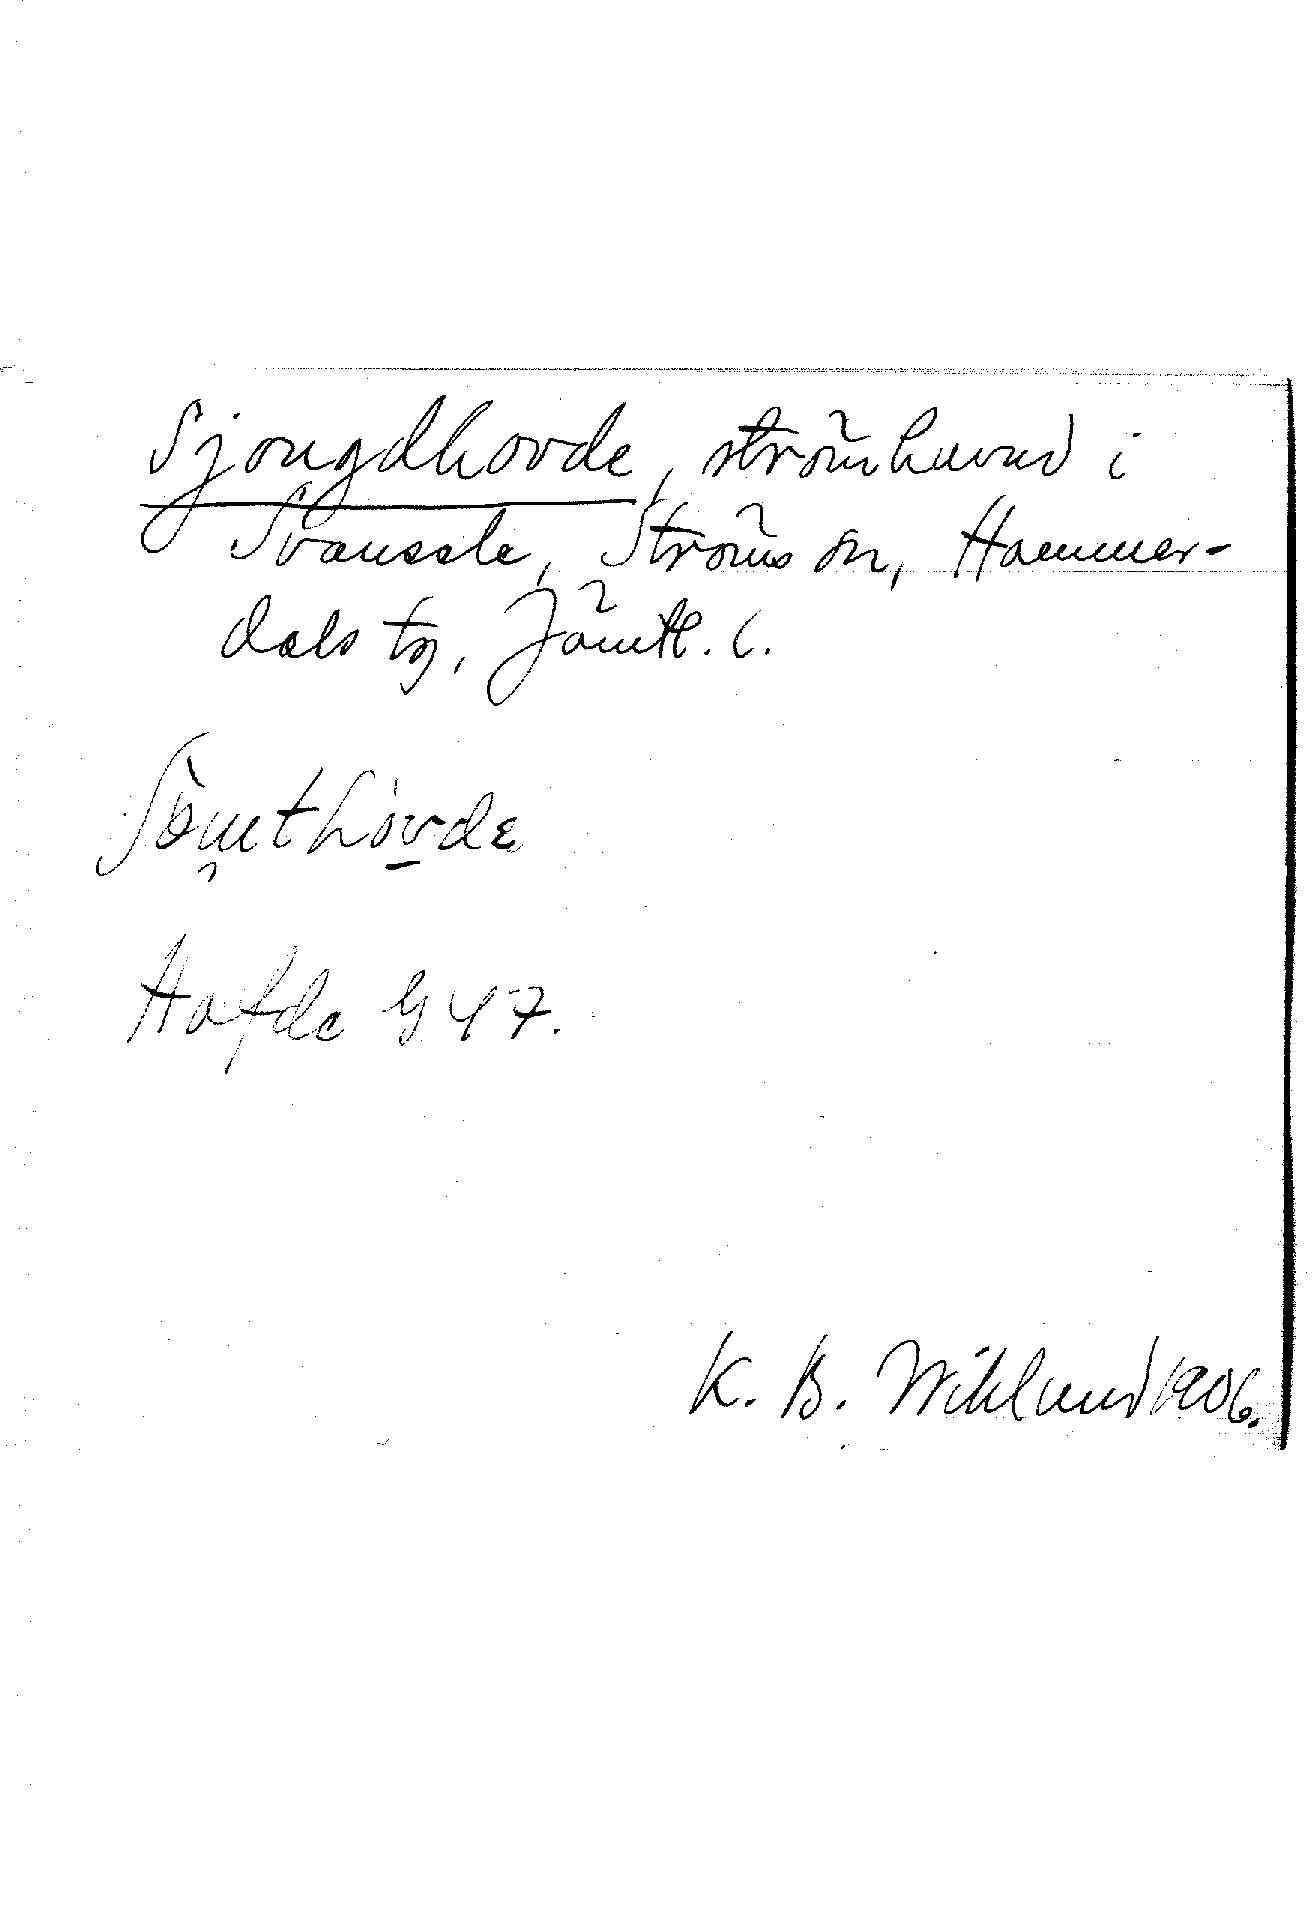 Sjougdhovde, strömhuvud i
Svansele, Ströms sn, Hammer-
dals tg, Jämtl. l.
Hafde G 47.
K. B. Wiklund 1906.